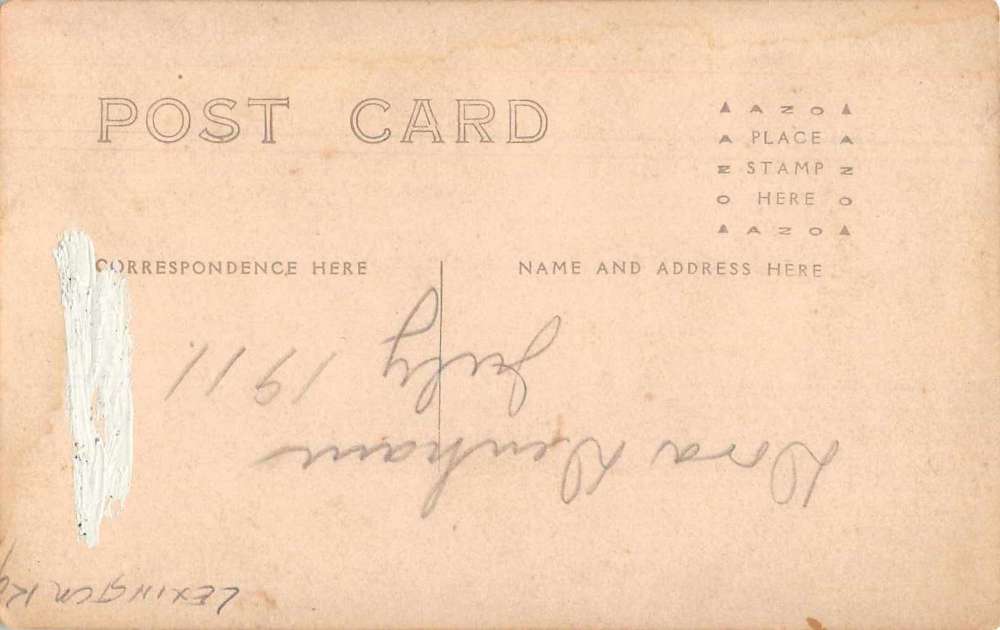 POST CARD
AZO
PLACE
STAMP
HERE
AZO
CORRESPONDENCE HERE
NAME AND ADDRESS HERE
Dora Denham
July 1911.
LEXINGTON Ky